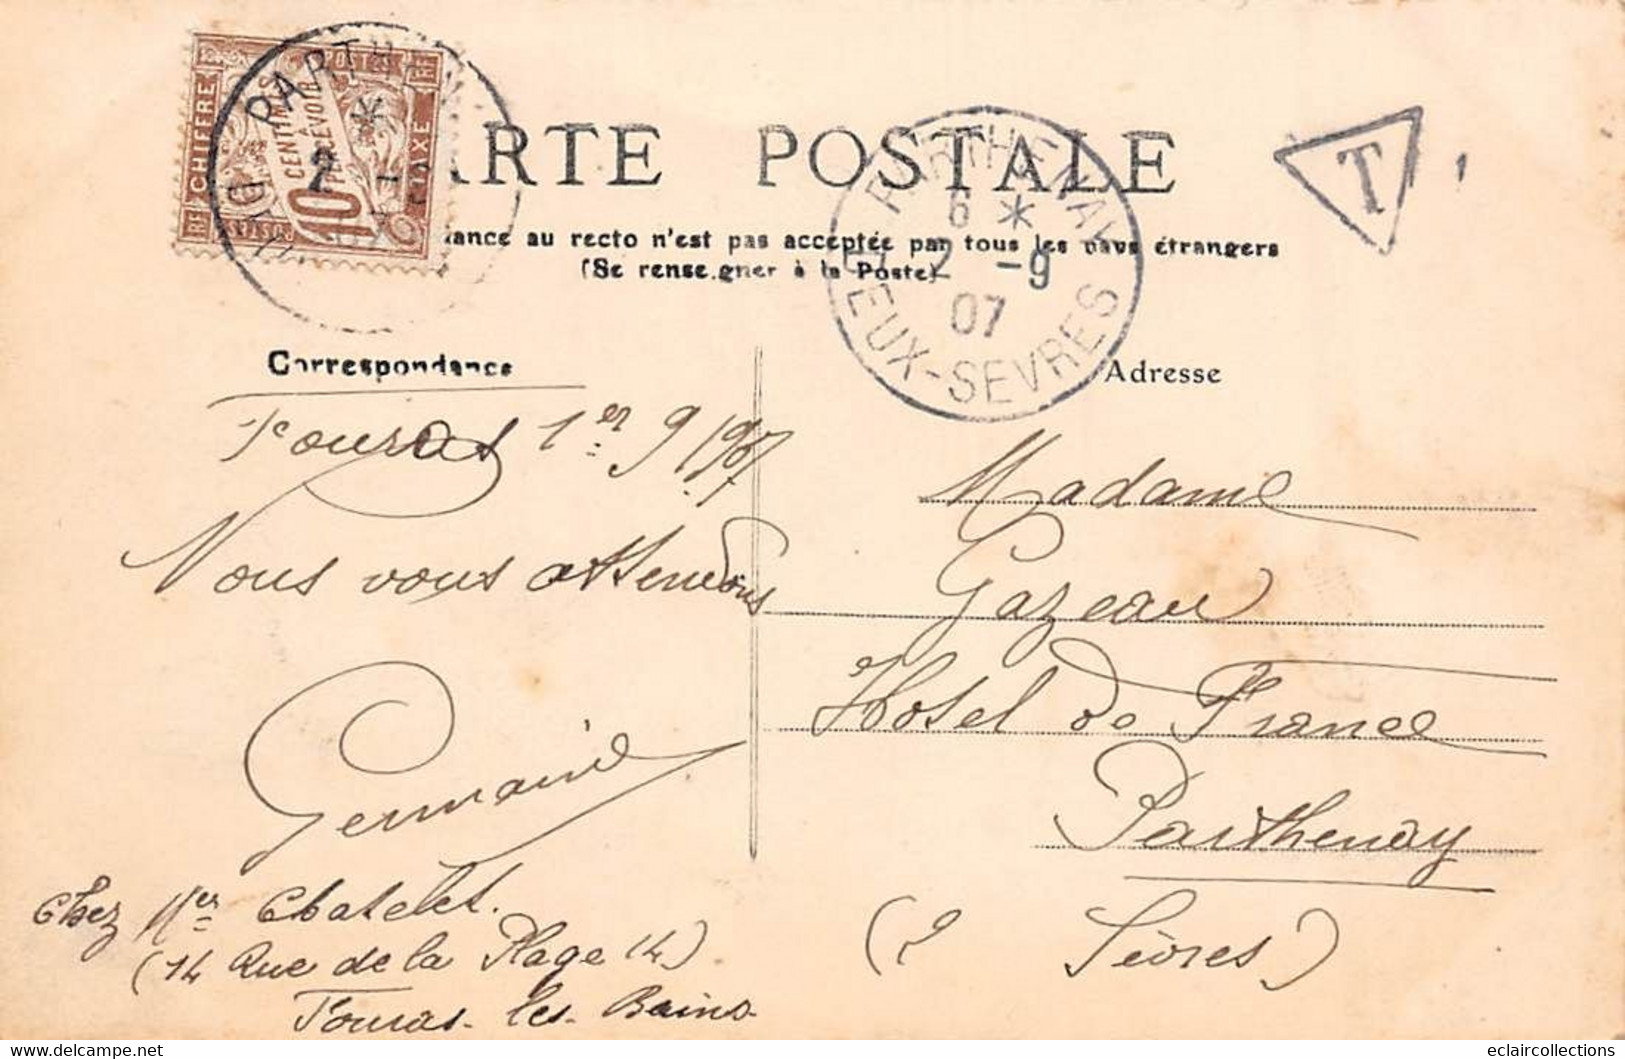 RF CHIFFRE TAXE RF
POSTES
10 CENTIMES À PERCEVOIR
POSTES
RF
PARTHEN
2 -9
CARTE POSTALE
T
ance au recto n'est pas acceptée par tous les pays étrangers
(Se renseigner à la Poste)
PARTHENAY
6 *
2 -9
07
DEUX-SEVRES
Correspondance
Adresse
Fouras 1er 9 1907
Nous vous attendons
Germaine
Chez Mer Chatelet.
(14 Rue de la Plage 14)
Fouras-les-Bains
Madame
Gazeau
Hotel de France
Parthenay
(2 Sèvres)
www.delcampe.net
eclaircollections